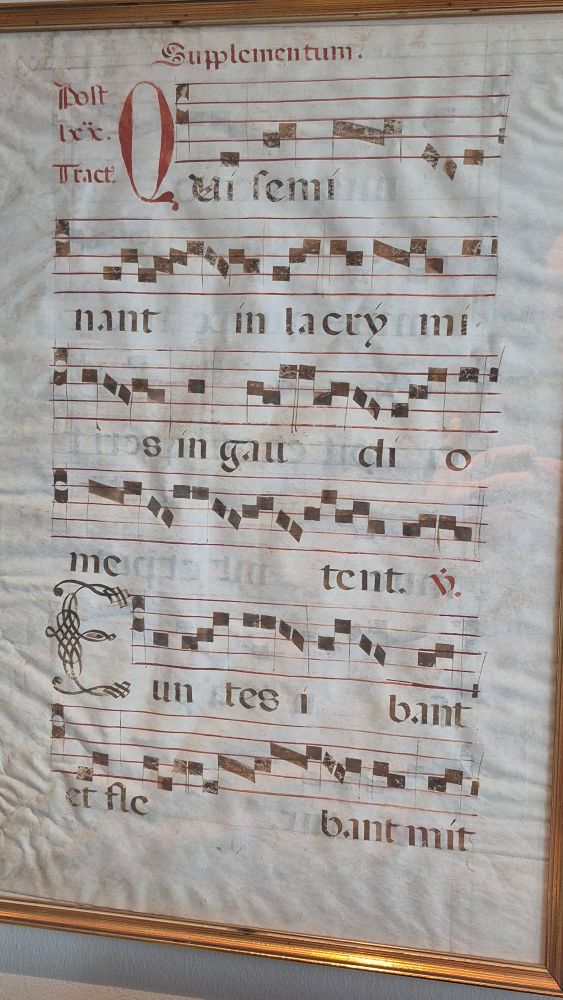 Supplementum.
Post
lxx.
Tract.
QUi semi
nant in lacry mi
is in gau di o
me tent. ℣.
Eun tes i bant
et fle
bant mit